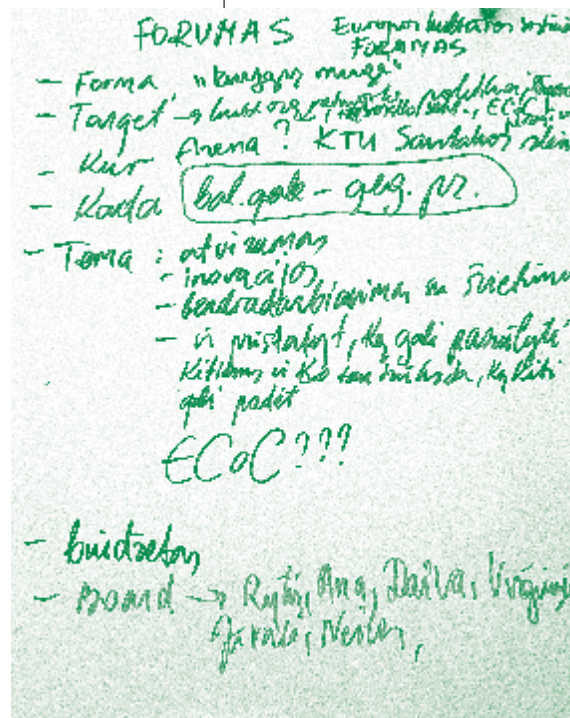 FORUMAS Europos kultūros sostinių
FORUMAS
- Forma „
- Target → kult. org, networks, politikai, ECoC
- Kur Arena? KTU Santakos slėnis
- Kada bal. gale - geg. pr.
- Tema: atvirumas
- inovacijos
- bendradarbiavimas su švietimu
- ir pristatyt, ką gali pasiūlyti
kitiems ir ko tau trūksta, ką kiti
gali padėt
ECoC???
- biudžetas
- Board → Rytis, Ana, Daiva, Virginija
Neilas,